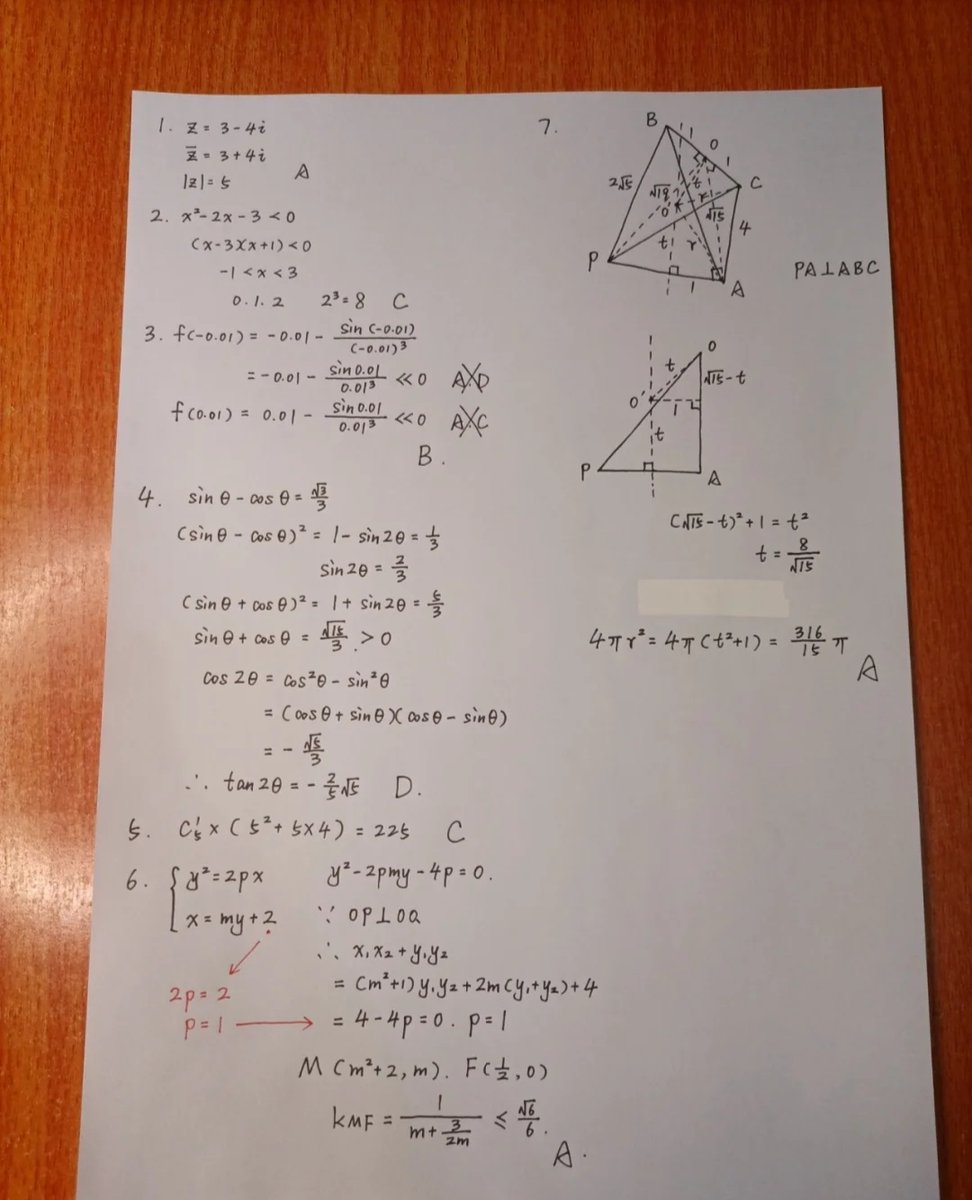 1. z = 3 - 4i
z̄ = 3 + 4i
|z| = 5 A
2. x² - 2x - 3 < 0
(x-3)(x+1) < 0
-1 < x < 3
0. 1. 2 2³ = 8 C
3. f(-0.01) = -0.01 - sin(-0.01)/(-0.01)³
= -0.01 - sin0.01/0.01³ ≪ 0 A D
f(0.01) = 0.01 - sin0.01/0.01³ ≪ 0 A C
B.
4. sinθ - cosθ = √3/3
(sinθ - cosθ)² = 1 - sin2θ = 1/3
sin2θ = 2/3
(sinθ + cosθ)² = 1 + sin2θ = 5/3
sinθ + cosθ = √15/3 > 0
cos2θ = cos²θ - sin²θ
= (cosθ + sinθ)(cosθ - sinθ)
= - √5/3
∴ tan2θ = - 2/5 √5 D.
5. C₅¹ × (5² + 5×4) = 225 C
6. { y² = 2px
x = my + 2
2p = 2
p = 1
y² - 2pmy - 4p = 0.
∵ OP⊥OQ
∴ x₁x₂ + y₁y₂
= (m²+1)y₁y₂ + 2m(y₁+y₂) + 4
= 4 - 4p = 0. p = 1
M(m²+2, m). F(1/2, 0)
kMF = 1/(m + 3/2m) ≤ √6/6.
A.
7.
B
1
O
1
C
2√5
√19
t
r
O'
√15
4
t
r
P
1
A
PA⊥ABC
O
t
√15-t
O'
1
t
P
A
(√15-t)² + 1 = t²
t = 8/√15
4πr² = 4π(t²+1) = 316/15 π
A